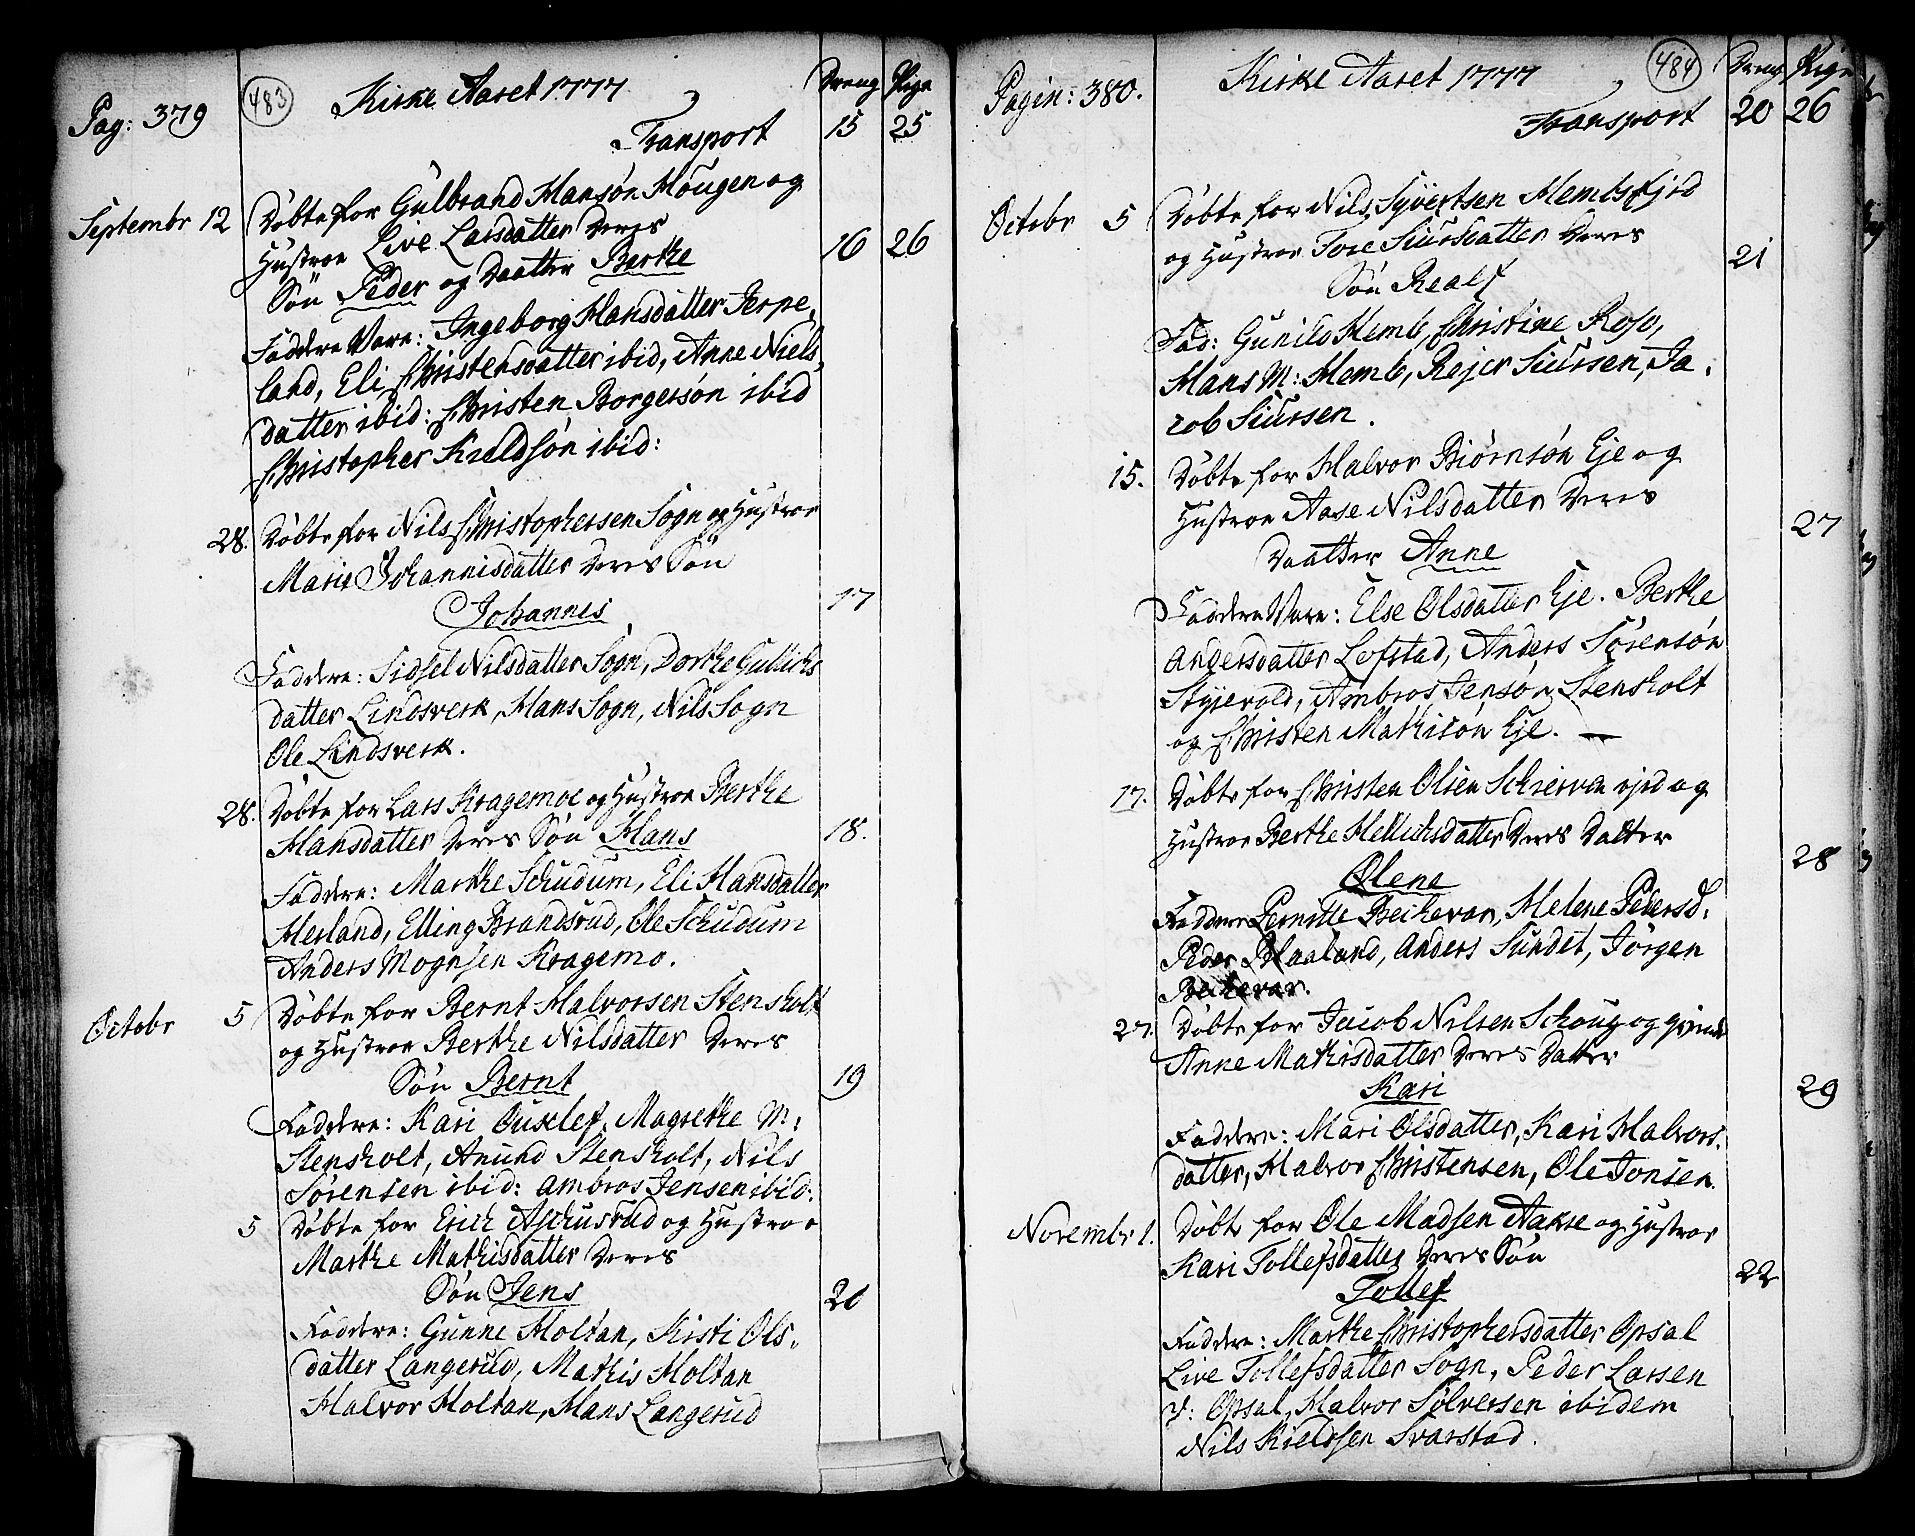 Pag: 379
483
Kirke Aaret 1777
Dreng Pige
Transport 15 25
Septembr 12 Døbte for Gulbrand Hansøn Hougen og
Hustroe Live Larsdatter Deres
Søn Peder og Daatter Berthe 16 26
Faddere Vare: Ingeborg Hansdatter Jerpe,
land, Eli Christensdatter ibid, Anne Niels,
datter ibid: Christen Borgersøn ibid
Christopher Kieldsøn ibid:
28. Døbte for Nils Christophersen Sogn og Hustroe
Marie Johannisdatter Deres Søn
Johannes 17
Faddere: Sidsel Nilsdatter Sogn, Dorthe Gullichs
datter Lindsverk, Hans Sogn, Nils Sogn
Ole Lindsverk.
28. Døbte for Lars Kragemoe og Hustroe Berthe
Hansdatter Deres Søn Hans 18.
Faddere: Marthe Schudum, Eli Hansdatter
Herland, Elling Brandsrud, Ole Schudum
Anders Mognsen Kragemo.
Octobr 5 Døbte for Bernt Halvorsen Stensholt
og Hustroe Berthe Nilsdatter Deres
Søn Bernt 19
Faddere: Kari Ouslef, Magrethe M:
Stensholt, Anund Stensholt, Nils
Sørensen ibid: Ambros Jensen ibid:
5 Døbte for Erich Aschusrud og Hustroe
Marthe Mathisdatter Deres
Søn Jens 20
Faddere: Gunne Holtan, Kisti Ols,
datter Langerud, Mathis Holtan
Halvor Holtan, Hans Langerud
Pagin: 380.
484
Kirke Aaret 1777
Dreng Pige
Transport 20 26
Octobr 5 Døbte for Nils Syvertsen Hembsejrd
og Hustroe Tore Siursdatter Deres
Søn Realf 21
Fad: Gunild Hemb, Christine Roso,
Hans M: Hemb, Rejer Siursen, Ja,
cob Siursen.
15. Døbte for Halvor Biørnsøn Eje og
Hustroe Aase Nilsdatter Deres
Daatter Anne 27
Faddere Vare: Else Olsdatter Eje. Berthe
Andersdatter Lofstad, Anders Sørensøn
Styjevold, Ambros Jensøn Stensholt
og Christen Mathisøn Eje.
17. Døbte for Christen Olsen Schiervenejrd og
Hustroe Berthe Hellichsdatter Deres Datter
Olene 28
Faddere Pernille Bechevar, Helene Pedersd.
Peder Blaaland, Anders Sundet, Jørgen
Bechevar.
27. Døbte for Jacob Nilsen Schoug og qvinde
Anne Mathisdatter Deres Datter
Kari 29
Faddere: Mari Olsdatter, Kari Halvors,
datter, Halvor Christensen, Ole Jonsen.
Novembr 1. Døbte for Ole Madsen Aakre og Hustroe
Kari Tollefsdatter Deres Søn
Tollef 22
Faddere: Marthe Christophersdatter Opsal
Live Tollefsdatter Sogn, Peder Larsen
V: Opsal, Halvor Sølversen ibidem
Nils Kieldsen Svarstad.